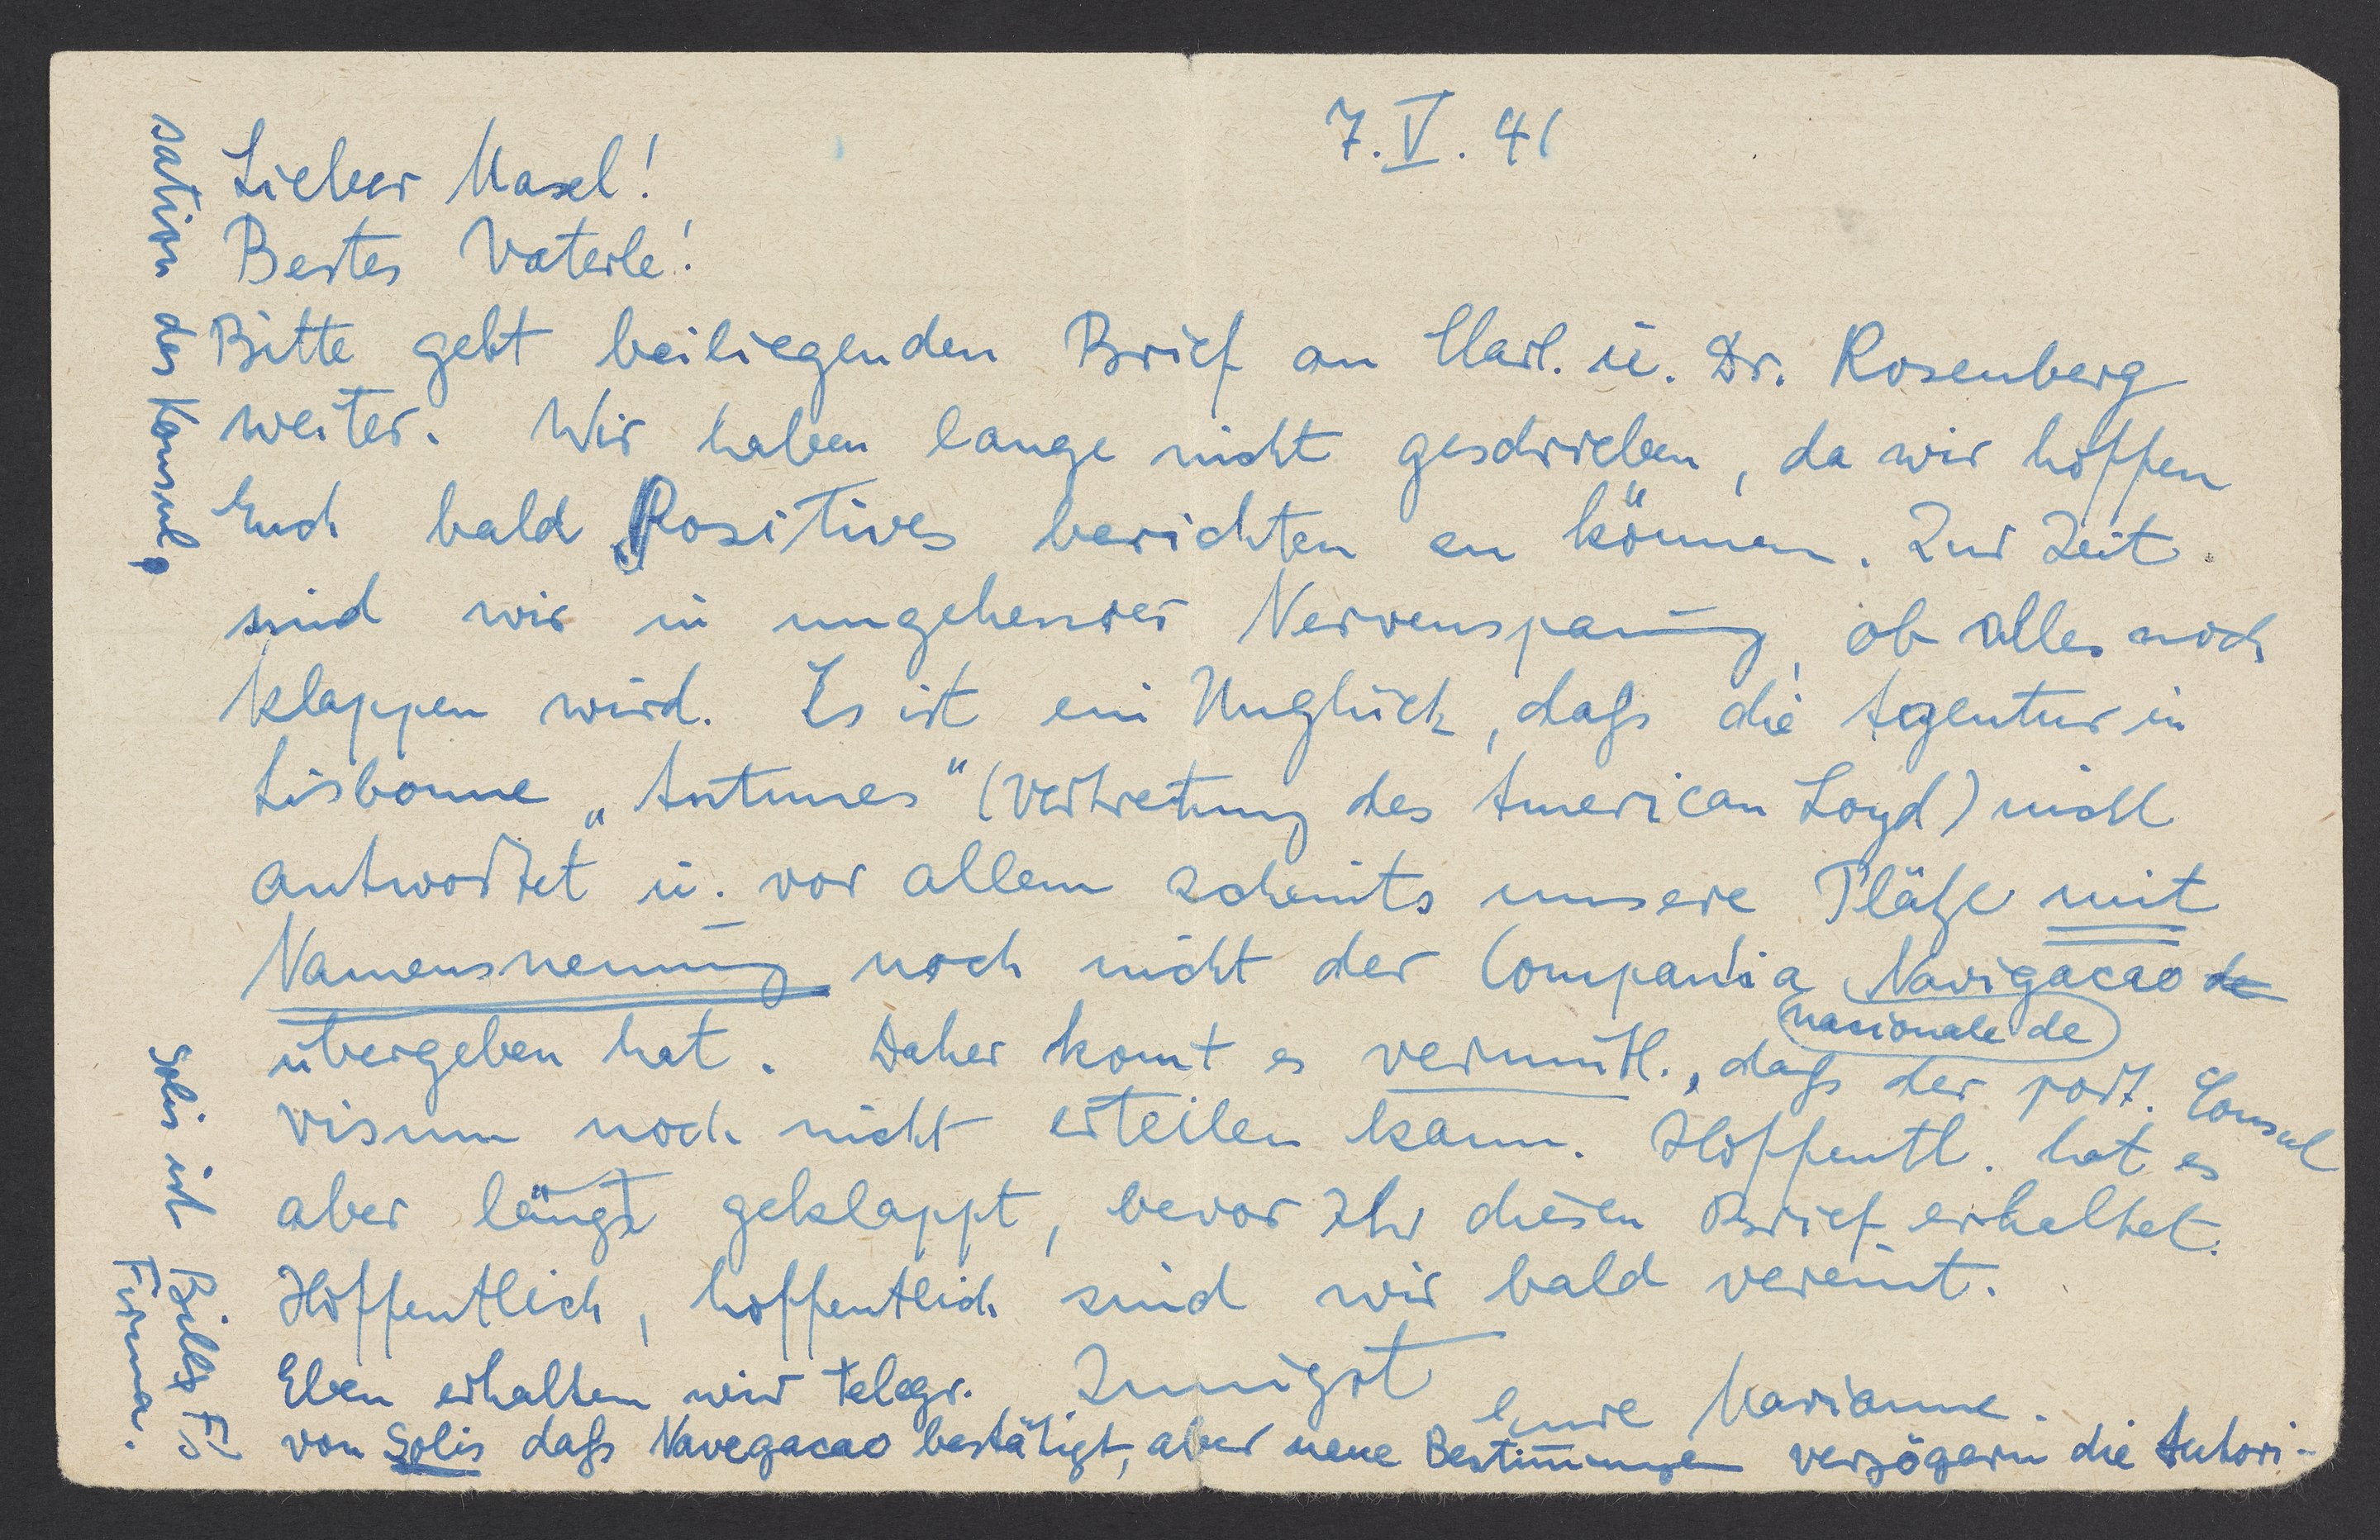 7. V. 41
Lieber Maxel!
Bestes Vaterle!
Bitte gebt beiliegenden Brief an Harl. u. Dr. Rosenberg
weiter. Wir haben lange nicht geschrieben, da wir hoffen
Euch bald Positives berichten zu können. Zur Zeit
sind wir in ungeheurer Nervenspan̄ung, ob alles noch
klappen wird. Es ist ein Unglück, dass die Agentur in
Lisbonne „Antunes" (Vertretung des American Loyd) nicht
antwortet u. vor allem scheints unsere Plätze mit
Namensnen̄ung noch nicht der Compania Navigacao de
nacionale de
übergeben hat. Daher kom̄t es vermutl., dass der port. Consul
visum noch nicht erteilen kann. Hoffentl. hat es
aber längst geklappt, bevor Ihr diesen Brief erhaltet.
Hoffentlich, hoffentlich sind wir bald vereint.
Innigst
Eure Marianne.
Eben erhalten wir telegr.
von Solis dass Navegacao bestätigt, aber neue Bestim̄ungen verzögern die Autori-
sation des Konsuls.
Solis ist Billys
Firma.